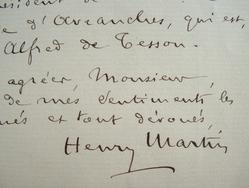 sident de
e d'Avranches, qui est,
Alfred de Tesson.
agréer, Monsieur,
de mes sentiments les
ués et tout dévoués,
Henry Martin